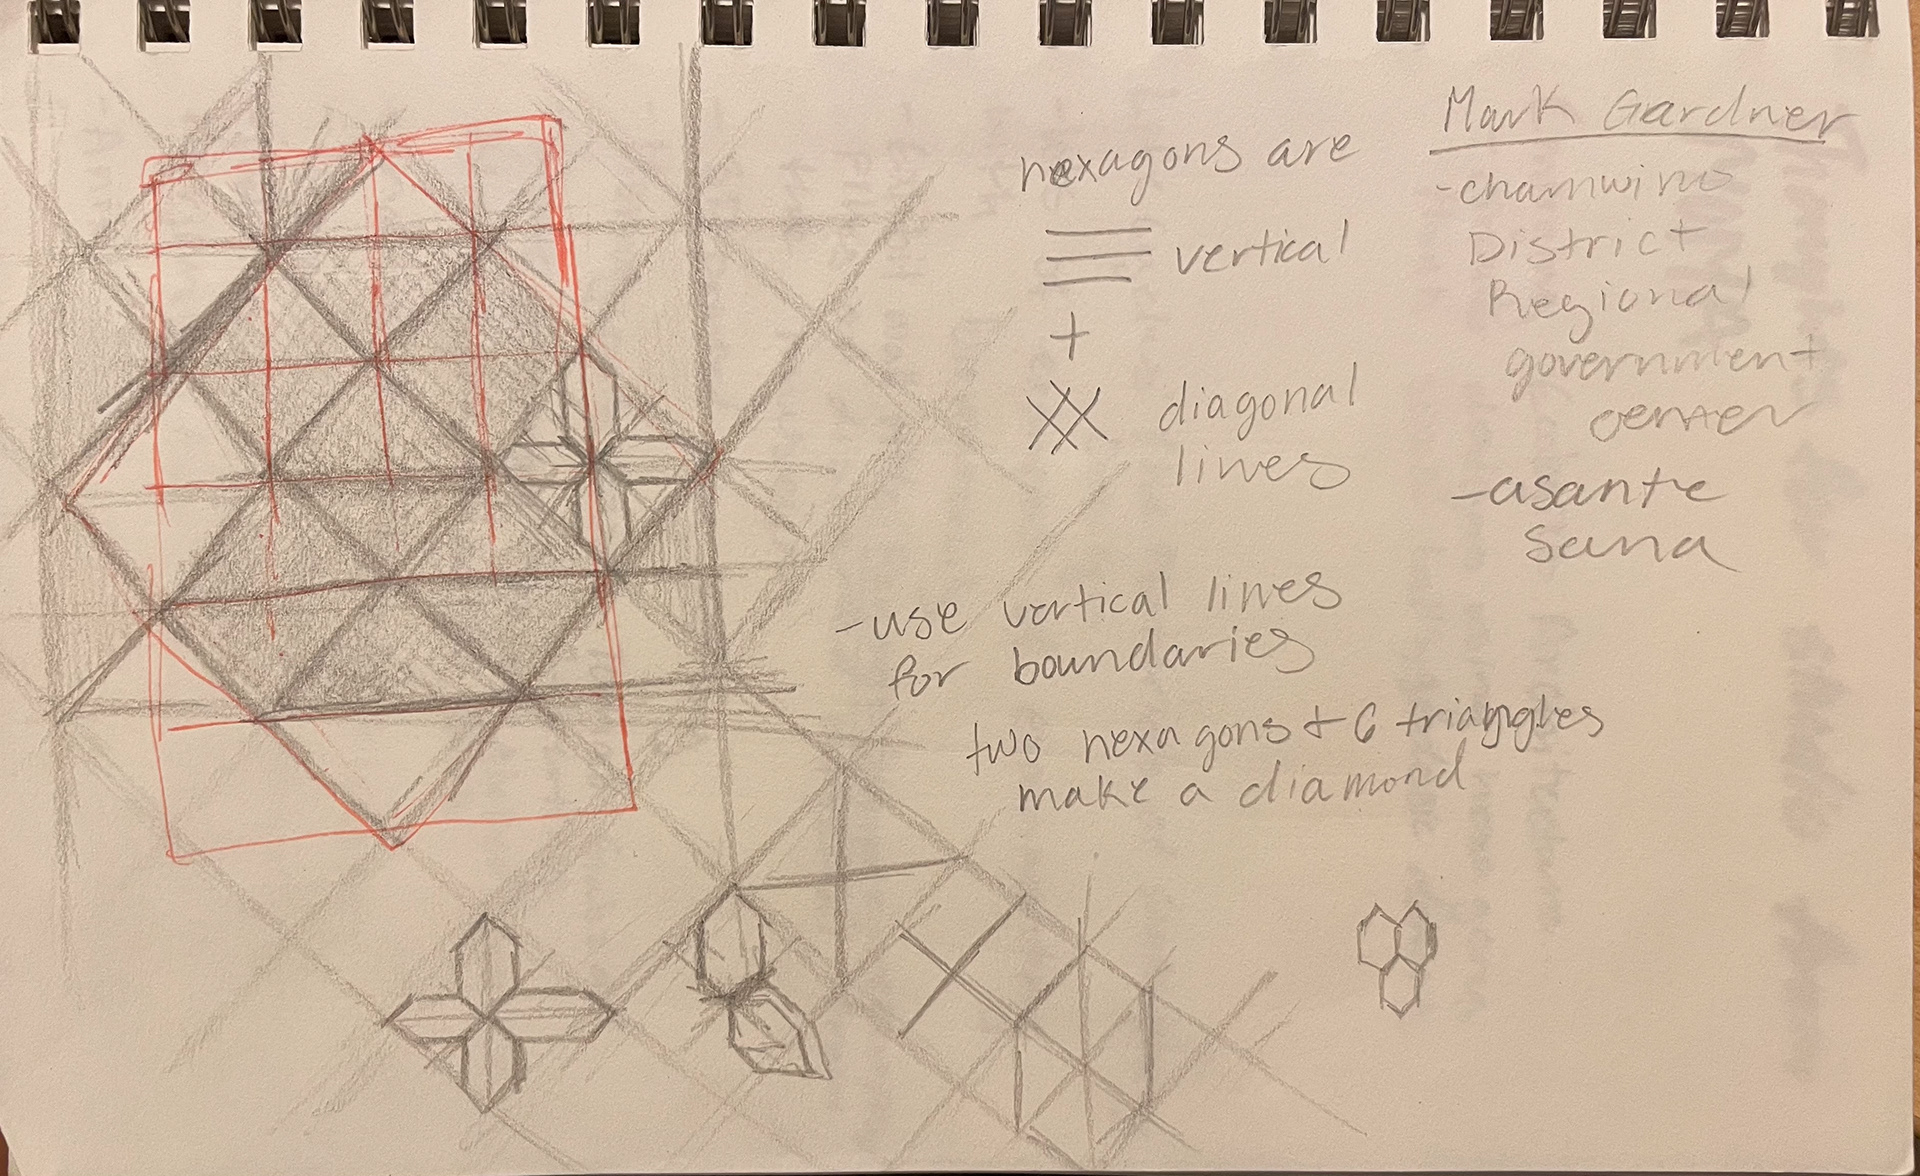 hexagons are
vertical
+
diagonal
lines
-use vertical lines
for boundaries
two hexagons + 6 triangles
make a diamond
Mark Gardner
-chamwino
District
Regional
government
center
-asante
sana